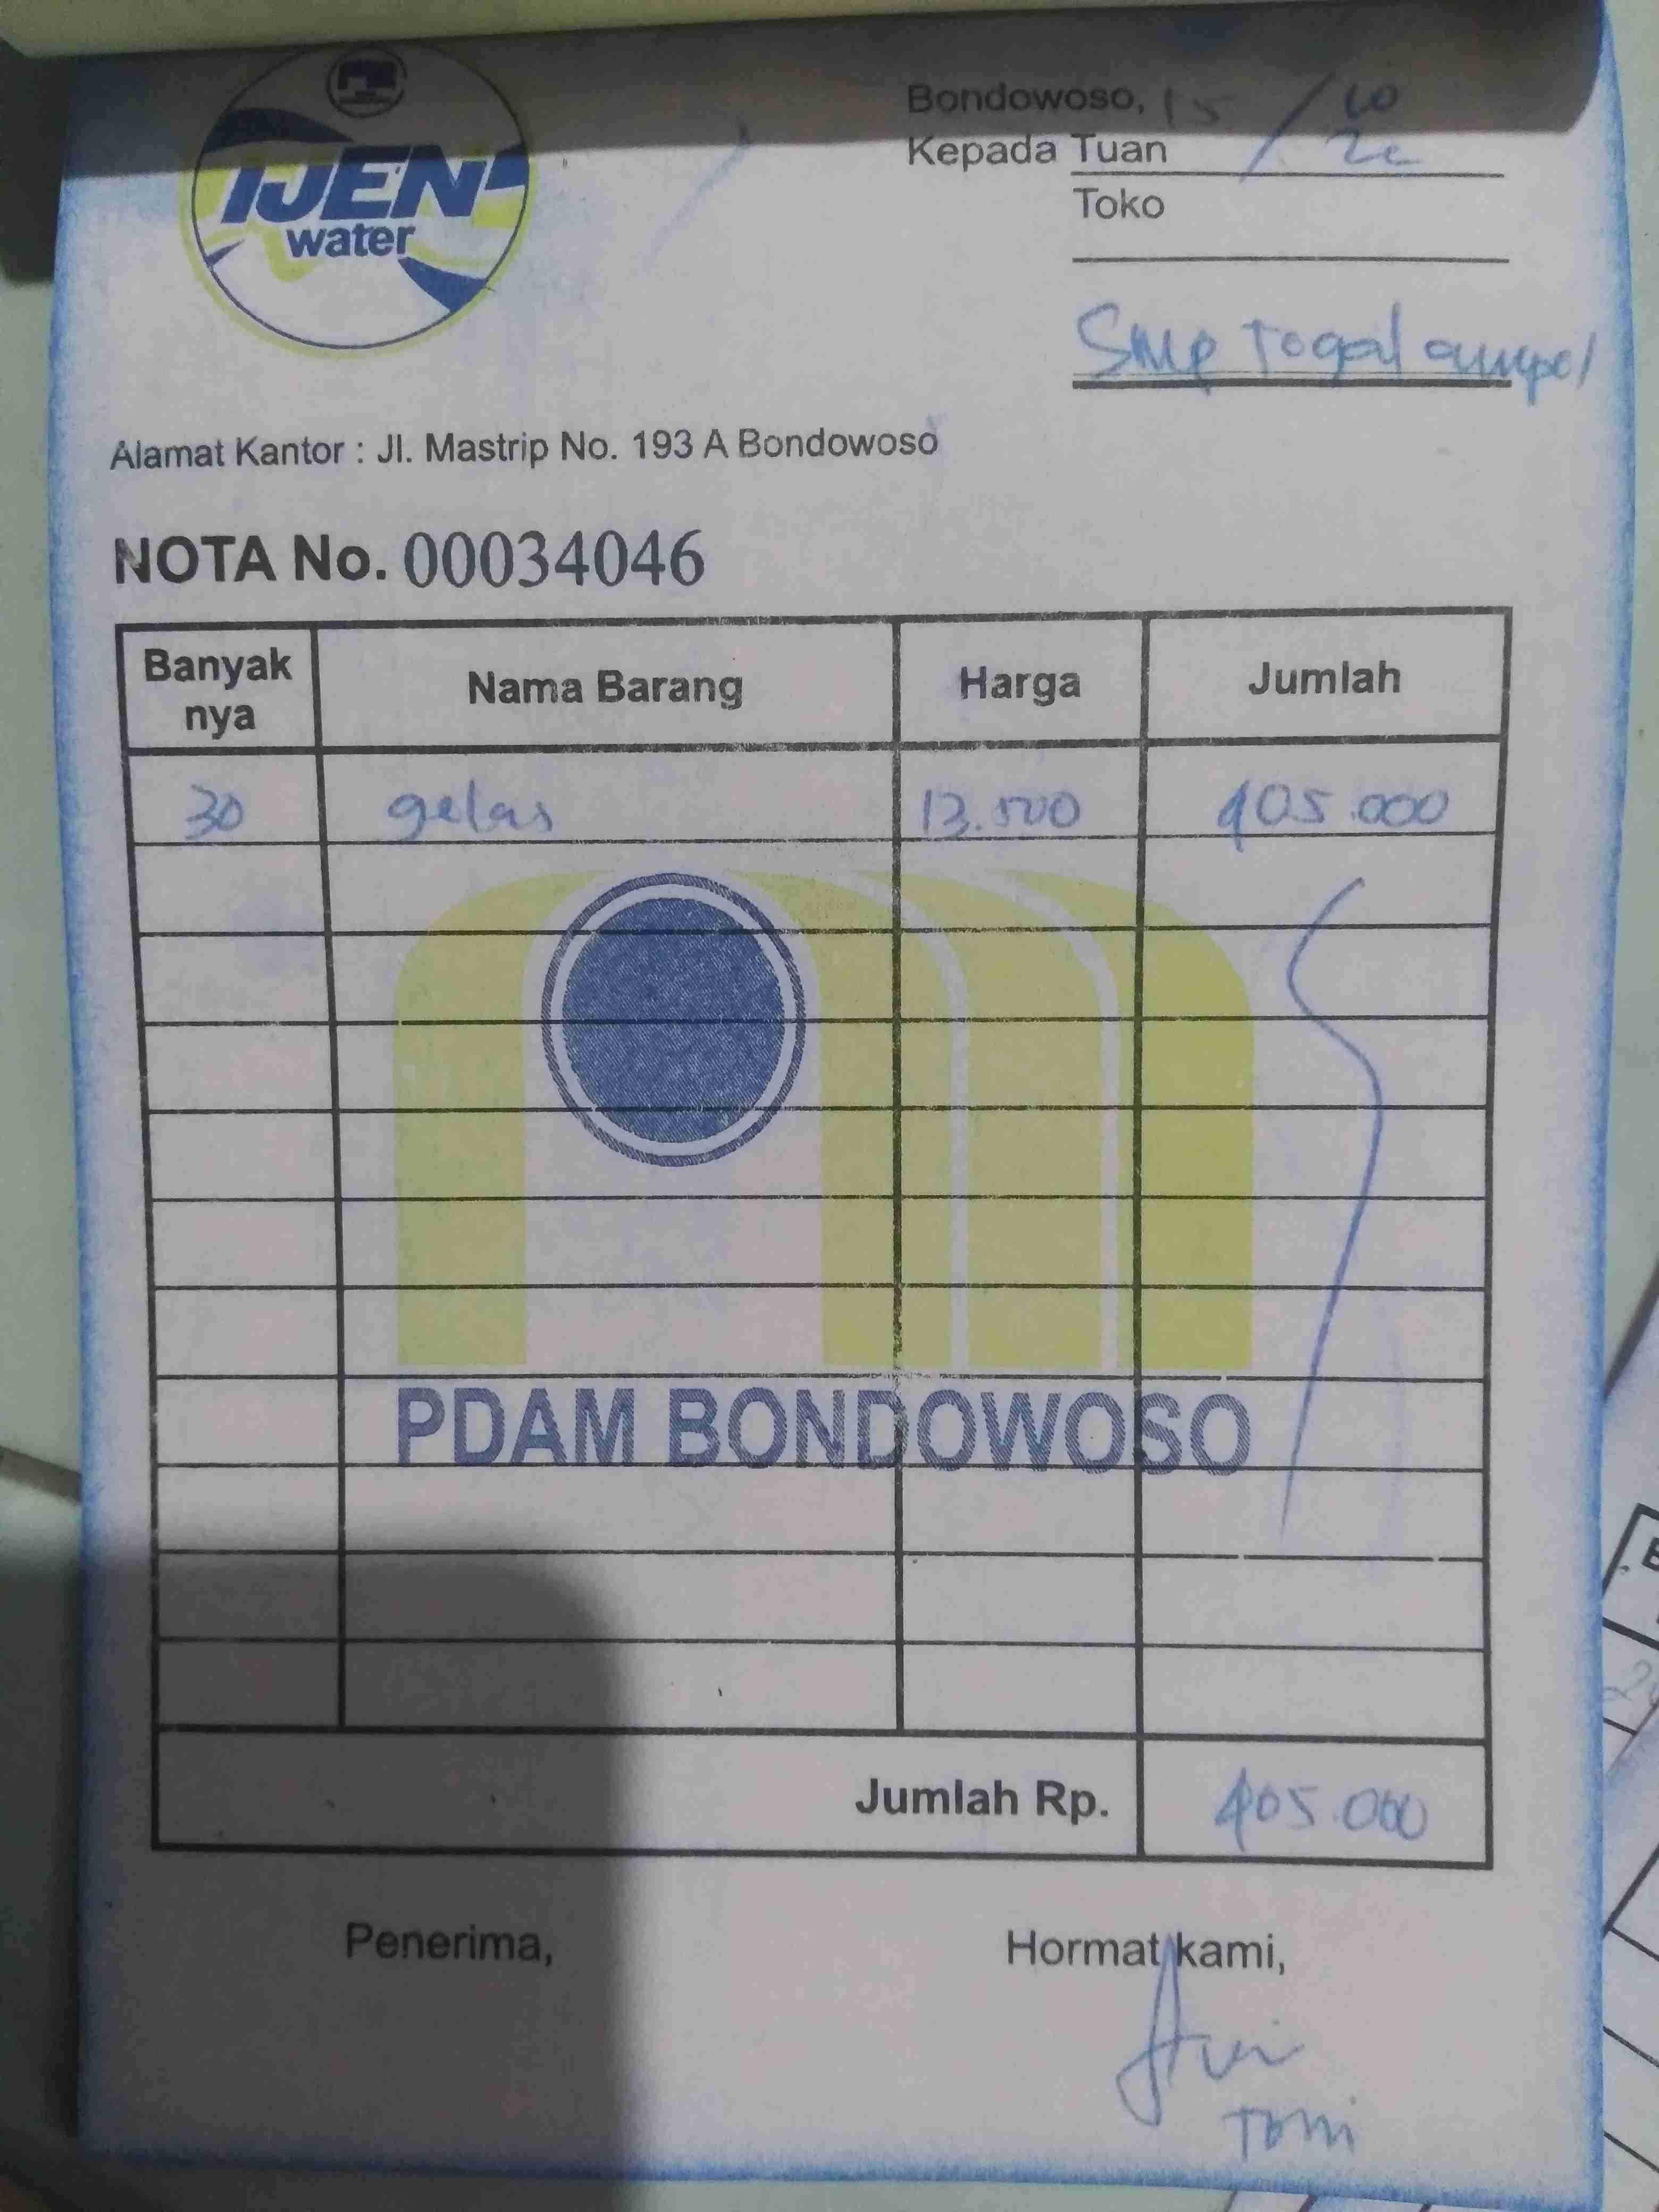 IJEN
water
Bondowoso, 15 / 10
Kepada Tuan
Toko
Smp Togal ampel
Alamat Kantor : Jl. Mastrip No. 193 A Bondowoso
NOTA No. 00034046
Banyak nya Nama Barang Harga Jumlah
30 gelas 13.500 405.000
PDAM BONDOWOSO
Jumlah Rp. 405.000
Penerima, Hormat kami,
Toni